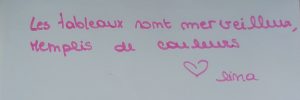 Les tableaux sont merveilleux,
remplis de couleurs
♡ lina